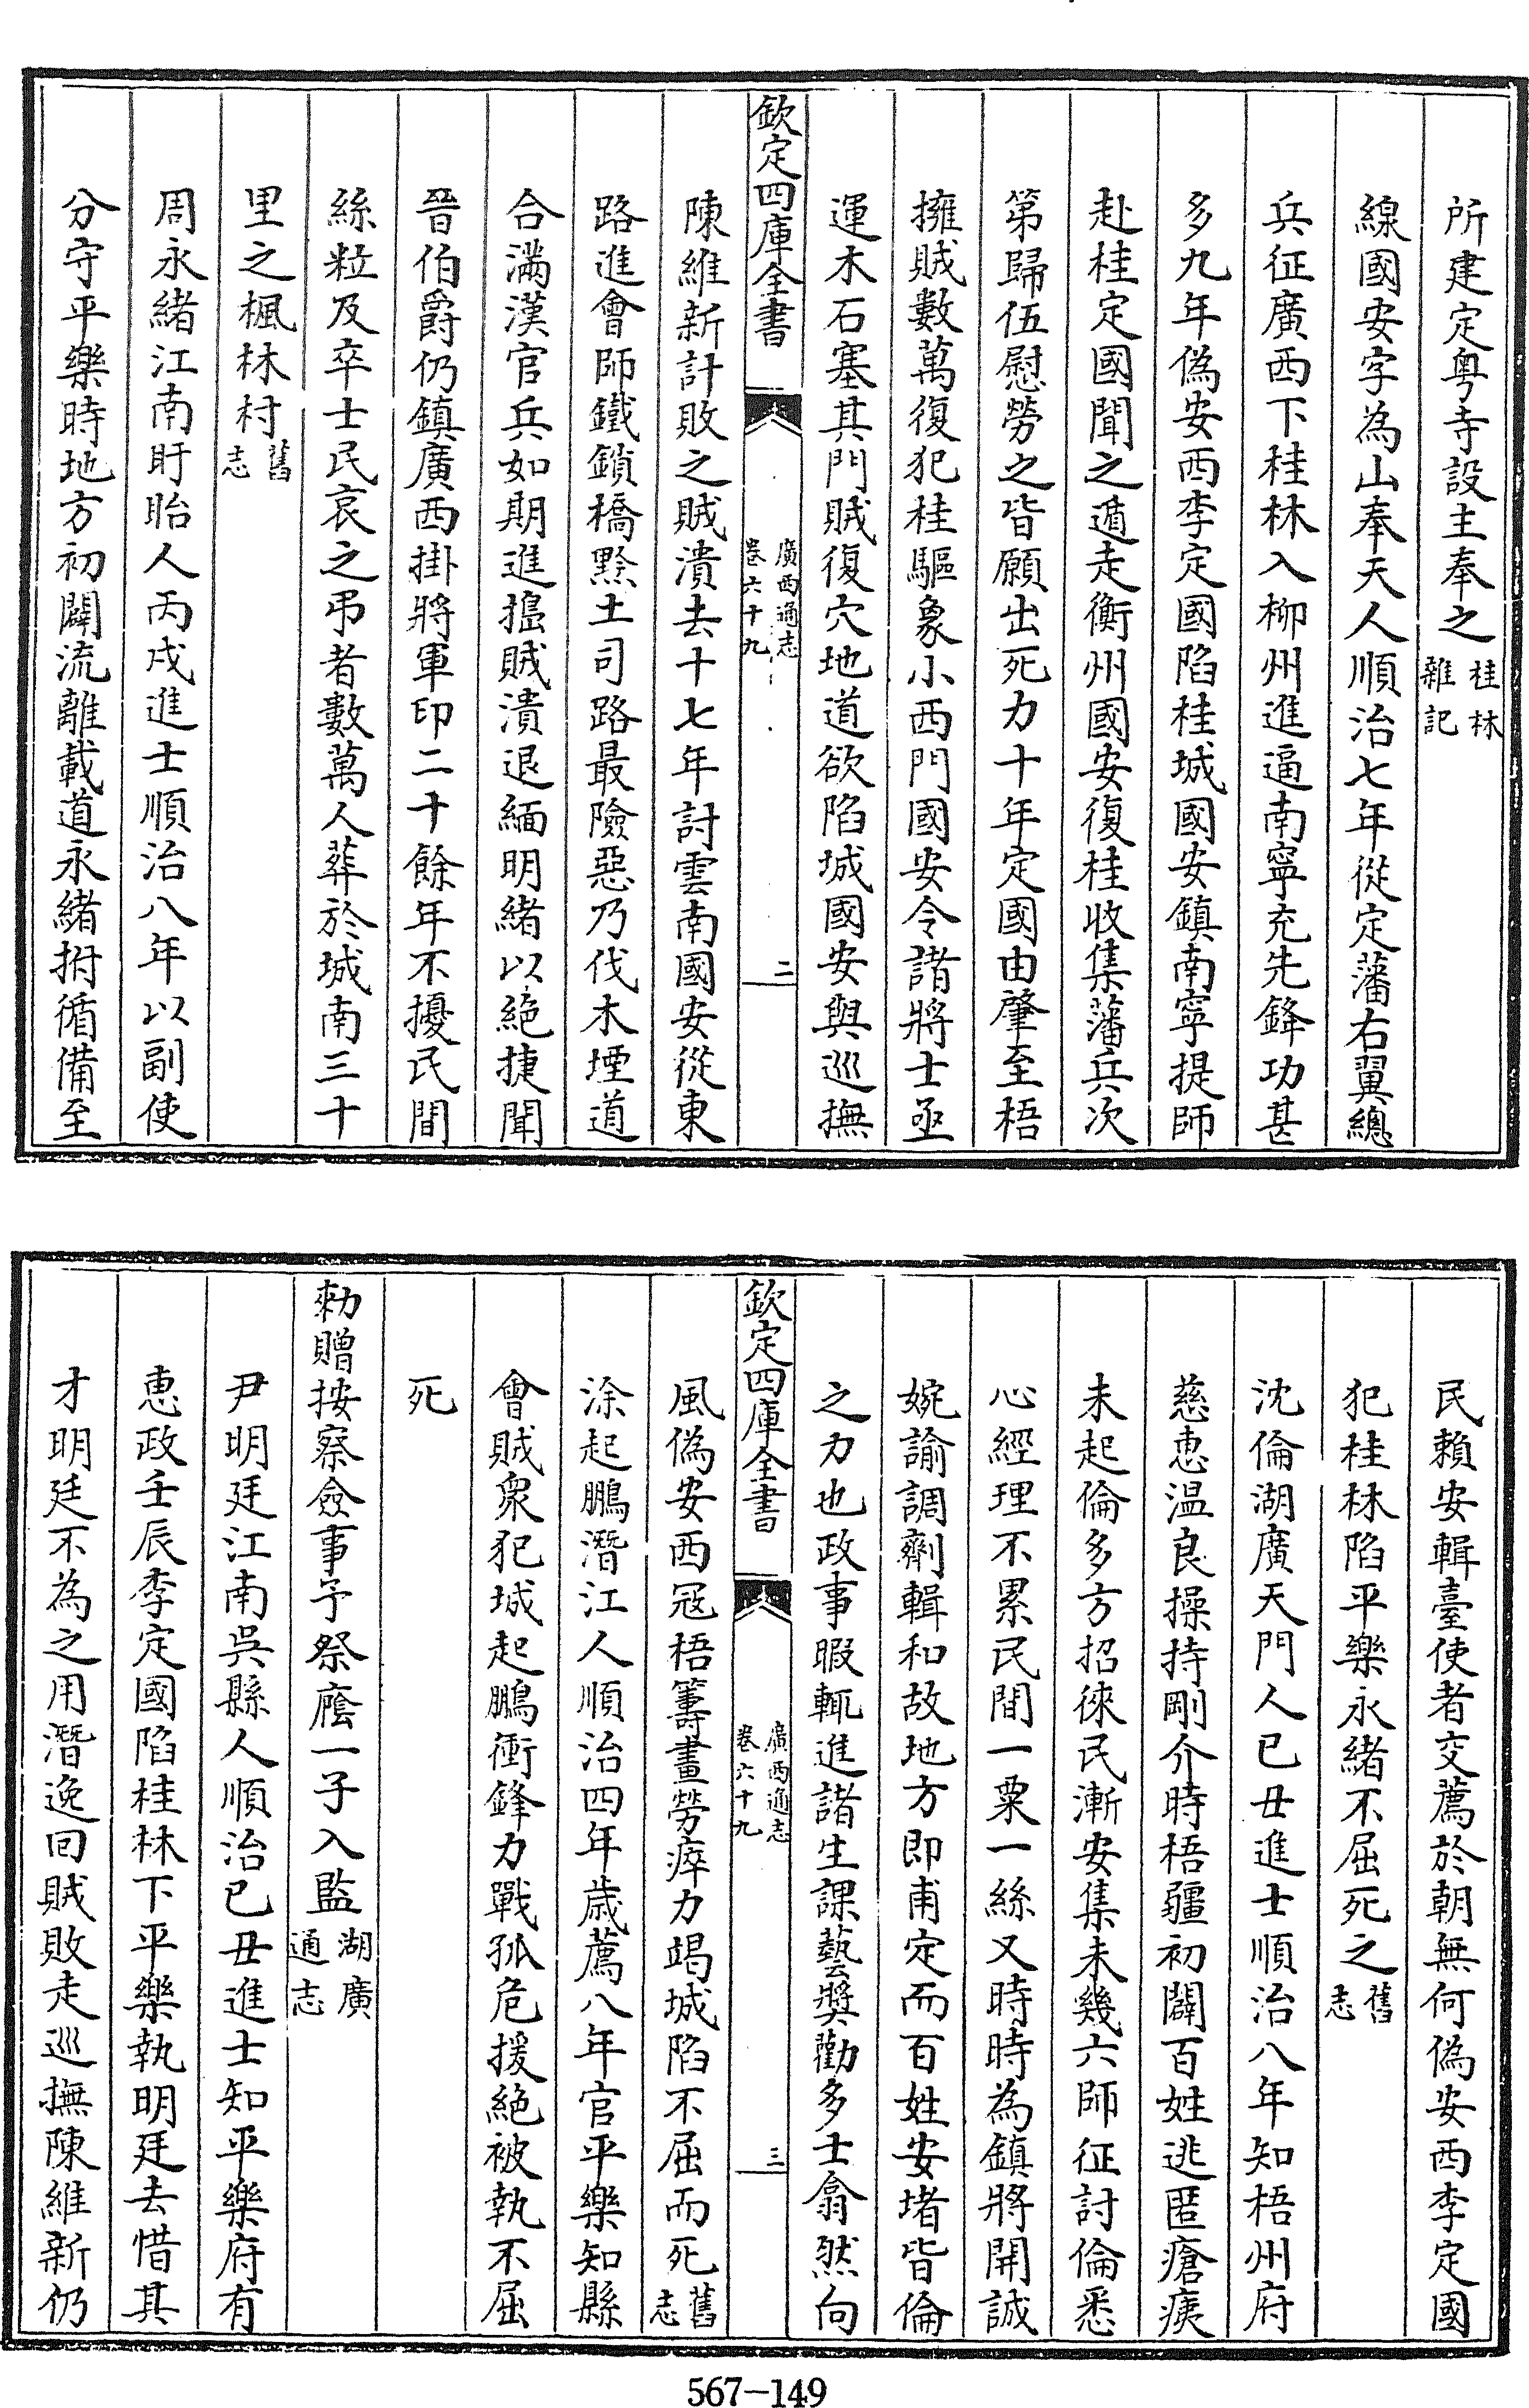 所建定粤寺設主奉之桂林雜記
線國安字為山奉天人順治七年從定藩右翼總
兵征廣西下桂林入柳州進逼南寧充先鋒功甚
多九年偽安西李定國陷桂城國安鎮南寧提師
赴桂定國聞之遁走衡州國安復桂收集藩兵次
第歸伍慰勞之皆願出死力十年定國由肇至梧
擁賊數萬復犯桂驅象小西門國安令諸將士亟
運木石塞其門賊復穴地道欲陷城國安與巡撫
欽定四庫全書 廣西通志卷六十九 二
陳維新計敗之賊潰去十七年討雲南國安從東
路進會師鐵鎖橋黙土司路最險惡乃伐木堙道
合滿漢官兵如期進搗賊潰退緬明緒以絕捷聞
晉伯爵仍鎮廣西掛將軍印二十餘年不擾民間
絲粒及卒士民哀之弔者數萬人葬於城南三十
里之楓林村舊志
周永緒江南盱眙人丙戌進士順治八年以副使
分守平樂時地方初闢流離載道永緒拊循備至
民賴安輯臺使者交薦於朝無何偽安西李定國
犯桂林陷平樂永緒不屈死之舊志
沈倫湖廣天門人已丑進士順治八年知梧州府
慈惠温良操持剛介時梧疆初闢百姓逃匿瘡痍
未起倫多方招徠民漸安集未幾六師征討倫悉
心經理不累民間一粟一絲又時時為鎮將開誠
婉諭調劑輯和故地方即甫定而百姓安堵皆倫
之力也政事暇輒進諸生課藝獎勸多士翕然向
欽定四庫全書 廣西通志卷六十九 三
風偽安西冦梧籌畫勞瘁力竭城陷不屈而死舊志
涂起鵬潛江人順治四年歲薦八年官平樂知縣
會賊衆犯城起鵬衝鋒力戰孤危援絕被執不屈
死
勅贈按察僉事予祭廕一子入監湖廣通志
尹明廷江南吳縣人順治已丑進士知平樂府有
惠政壬辰李定國陷桂林下平樂執明廷去惜其
才明廷不為之用潛逸回賊敗走巡撫陳維新仍
567-149